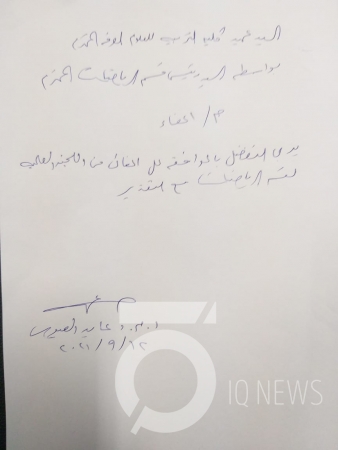 السيد عميد كلية التربية للعلوم الصرفة المحترم
بواسطة السيد رئيس قسم الرياضيات المحترم
م/ اعفاء
يرجى التفضل بالموافقة على اعفائي من اللجنة العلمية
لقسم الرياضيات مع التقدير
ا.م.د عايد
٢٠٢١/٩/١٢
IQ NEWS